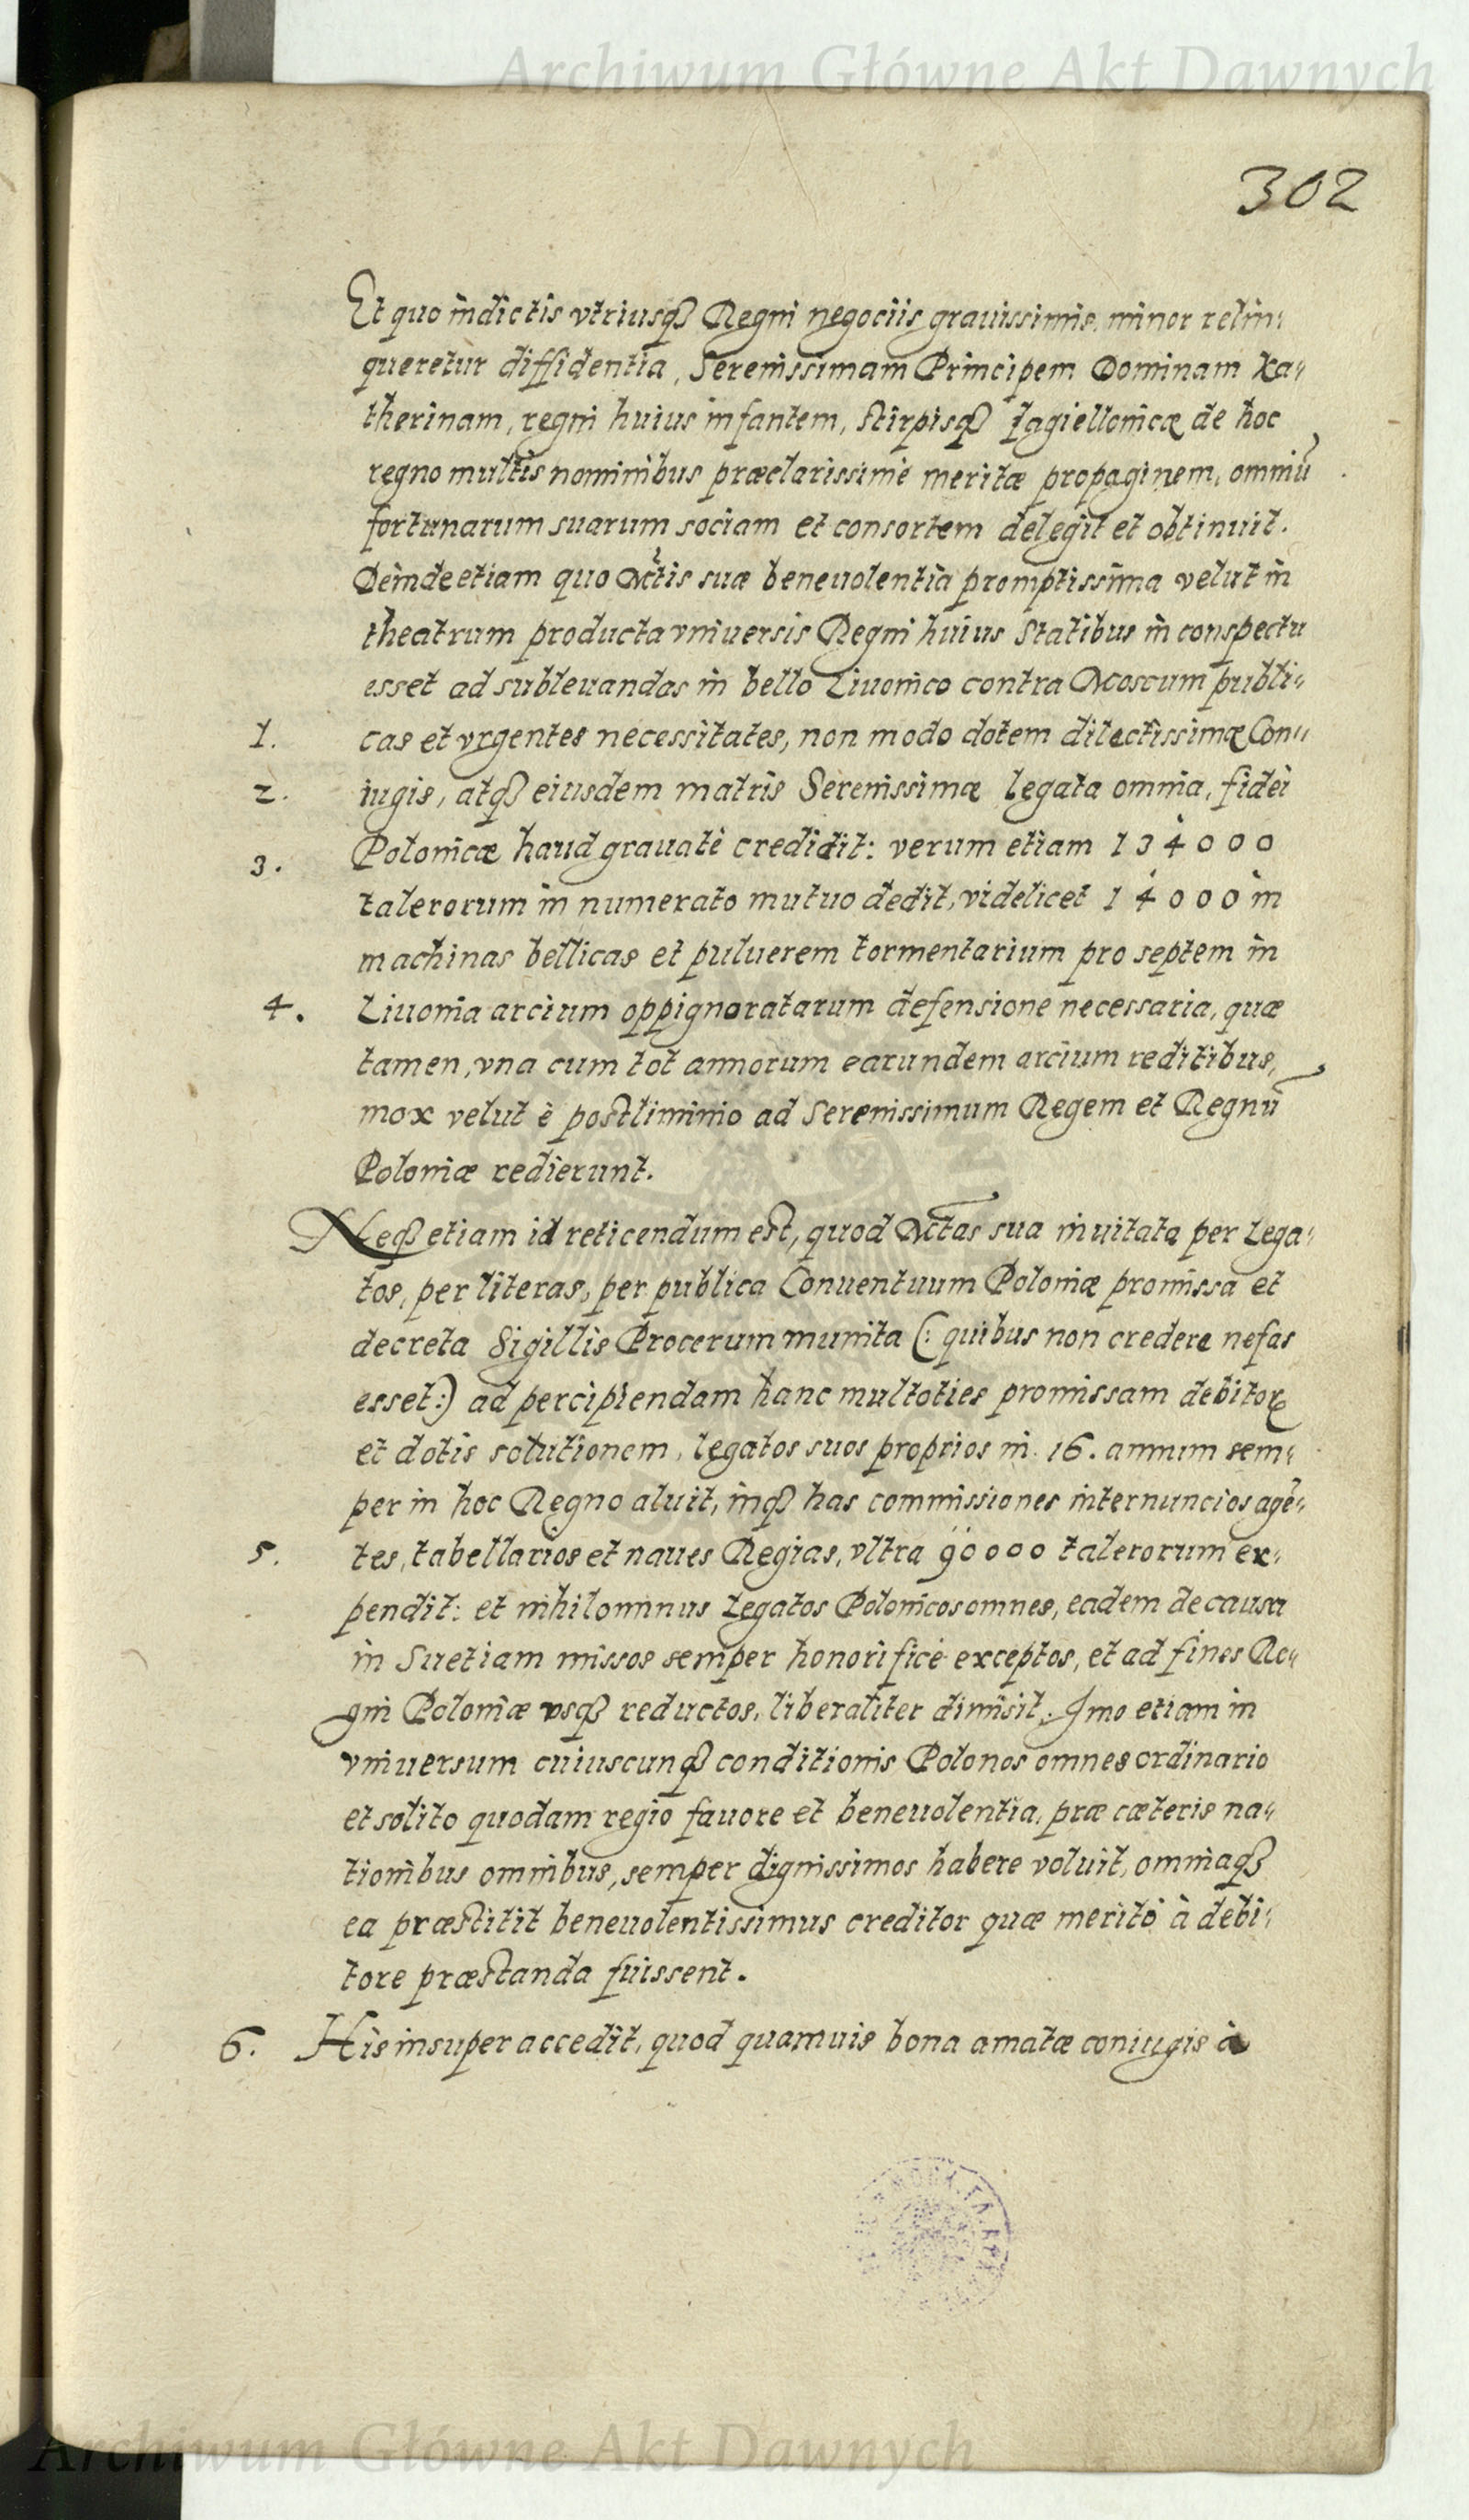 Archiwum Główne Akt Dawnych
302
Et quo in dictis vtriusq꜄ Regni negociis grauissimis, minor relin„
queretur diffidentia, Serenissimam Principem Dominam Ka„
therinam, regni huius infantem, stirpisq꜄ Jagiellonicæ de hoc
regno multis nominibus præclarissimè meritæ propaginem, omniū
fortunarum suarum sociam et consortem delegit et obtinuit.
Deinde etiam quo Mᵗⁱˢ suæ beneuolentia promptissima velut in
theatrum producta vniuersis Regni huius Statibus in conspectu
esset ad subleuandas in bello Liuonico contra Moscum publi„
1. cas et vrgentes necessitates, non modo dotem dilectissimæ Con„
2. iugis, atq꜄ eiusdem matris Serenissimæ legata omnia, fidei
3. Polonicæ haud grauatè credidit: verum etiam 134000
talerorum in numerato mutuo dedit, videlicet 14000 in
machinas bellicas et puluerem tormentarium pro septem in
4. Liuonia arcium oppignoratarum defensione necessaria, quæ
tamen, vna cum tot annorum earundem arcium reditibus,
mox velut è postliminio ad Serenissimum Regem et Regnū
Poloniæ redierunt.
Neq꜄ etiam id reticendum est, quod Mᵗᵃˢ sua inuitata per Lega„
tos, per literas, per publica Conuentuum Poloniæ promissa et
decreta Sigillis Procerum munita (: quibus non credere nefas
esset:) ad percipiendam hanc multoties promissam debitorꝝ
et dotis solutionem, legatos suos proprios in 16. annum sem„
per in hoc Regno aluit, inq꜄ has commissiones internuncios agē„
5. tes, tabellarios et naues Regias, vltra 90000 talerorum ex„
pendit: et nihilominus Legatos Polonicos omnes, eadem de causa
in Suetiam missos semper honorificè exceptos, et ad fines Re„
gni Poloniæ vsq꜄ reductos, liberaliter dimisit. Imo etiam in
vniuersum cuiuscunq꜄ conditionis Polonos omnes ordinario
et solito quodam regio fauore et beneuolentia, præ cæteris na„
tionibus omnibus, semper dignissimos habere voluit, omniaq꜄
ea præstitit beneuolentissimus creditor quæ meritò à debi„
tore præstanda fuissent.
6. His insuper accedit, quod quamuis bona amatæ coniugis à
Archiwum Główne Akt Dawnych